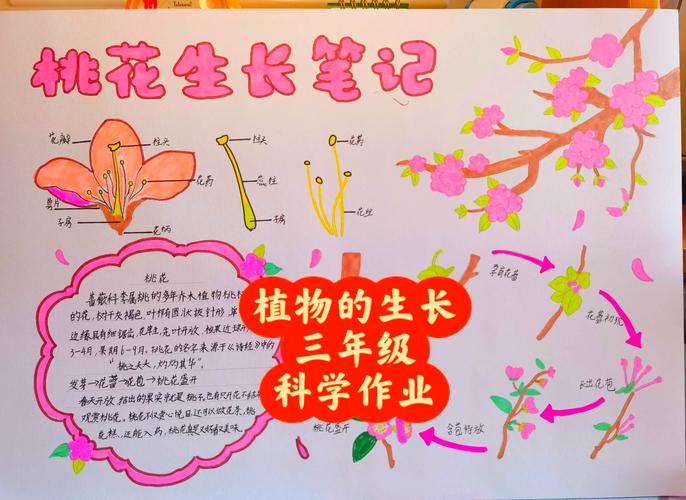 桃花生长笔记
花瓣
柱头
花药
萼片
子房
花柄
柱头
花柱
子房
花药
花丝
桃花
蔷薇科李属桃的多年乔木植物桃树
的花,树干灰褐色,叶椭圆状披针形,单
边缘具有细锯齿,花单生,先叶开放,核果近球形
3-4月,果期6-9月,桃花的名字来源于《诗经》中的
“桃之夭夭,灼灼其华。”
发芽→花蕾→花苞→桃花盛开
春天开放,结出的果实就是桃子,也有只开花不结
观赏桃花。桃花不仅赏心悦目还可以做花茶、桃
花糕、还能入药,桃花真是又好看又美味。
孕育花蕾
花蕾初绽
长出花苞
含苞待放
桃花盛开
植物的生长
三年级
科学作业